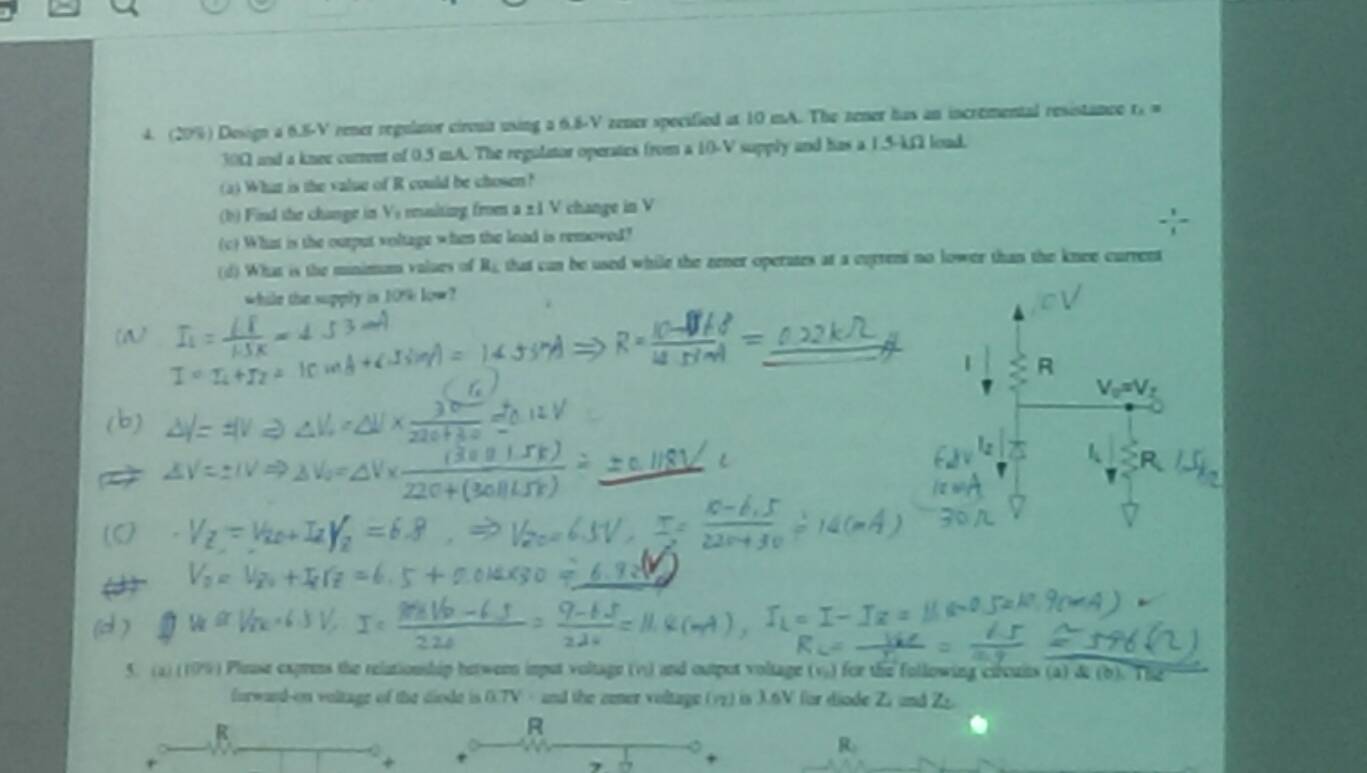 4. (20%) Design a 6.8-V zener regulator circuit using a 6.8-V zener specified at 10 mA. The zener has an incremental resistance rz =
30Ω and a knee current of 0.5 mA. The regulator operates from a 10-V supply and has a 1.5-kΩ load.
(a) What is the value of R could be chosen?
(b) Find the change in V₀ resulting from a ±1 V change in V
(c) What is the output voltage when the load is removed?
(d) What is the minimum values of RL that can be used while the zener operates at a current no lower than the knee current
while the supply is 10% low?
(a) IL = 6.8/1.5K = 4.53mA
I = IL+IZ = 10mA+4.53mA = 14.53mA ⇒ R = 10-6.8/14.53mA = 0.22kΩ
10V
I R
V₀=VZ
(b) ΔV= ±1V ⇒ ΔV₀=ΔV× 30/220+30 = ±0.12V
(rz)
⇒ ΔV=±1V ⇒ ΔV₀=ΔV× (30//1.5k)/220+(30//1.5k) ≒ ±0.118V
6.8V IZ IL RL 1.5kΩ
10mA
30Ω
(c) VZ = VZ0+IZrZ = 6.8, ⇒ VZ0=6.5V, I = 10-6.5/220+30 ≒ 14(mA)
V₀ = VZ0+IZrZ = 6.5+0.014×30 ≒ 6.92 (V)
(d) I = 9-6.5/220 = 11.4(mA), IL = I-IZ = 11.4-0.5=10.9(mA)
RL = 6.5/10.9 ≅ 596(Ω)
5. (a) (10%) Please express the relationship between input voltage (vI) and output voltage (vo) for the following circuits (a) & (b). The
forward-on voltage of the diode is 0.7V and the zener voltage (vZ) is 3.6V for diode Z₁ and Z₂.
R R R
+ + + Z +